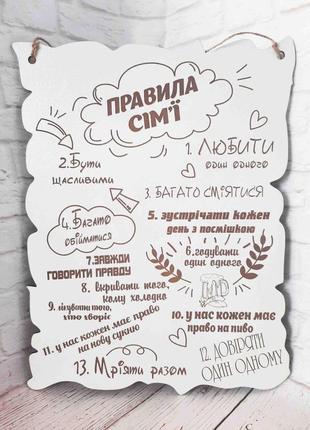 ПРАВИЛА
СІМ'Ї
1. ЛЮБИТИ
один одного
2. Бути
щасливими
3. БАГАТО СМІЯТИСЯ
4. Багато
обійматися
5. зустрічати кожен
день з посмішкою
6. годувати
один одного
7. ЗАВЖДИ
ГОВОРИТИ ПРАВДУ
8. вкривати того,
кому холодно
9. лікувати того,
хто хворіє
10. у нас кожен має
право на пиво
11. у нас кожен має право
на нову сукню
12. ДОВІРЯТИ
ОДИН ОДНОМУ
13. Мріяти разом